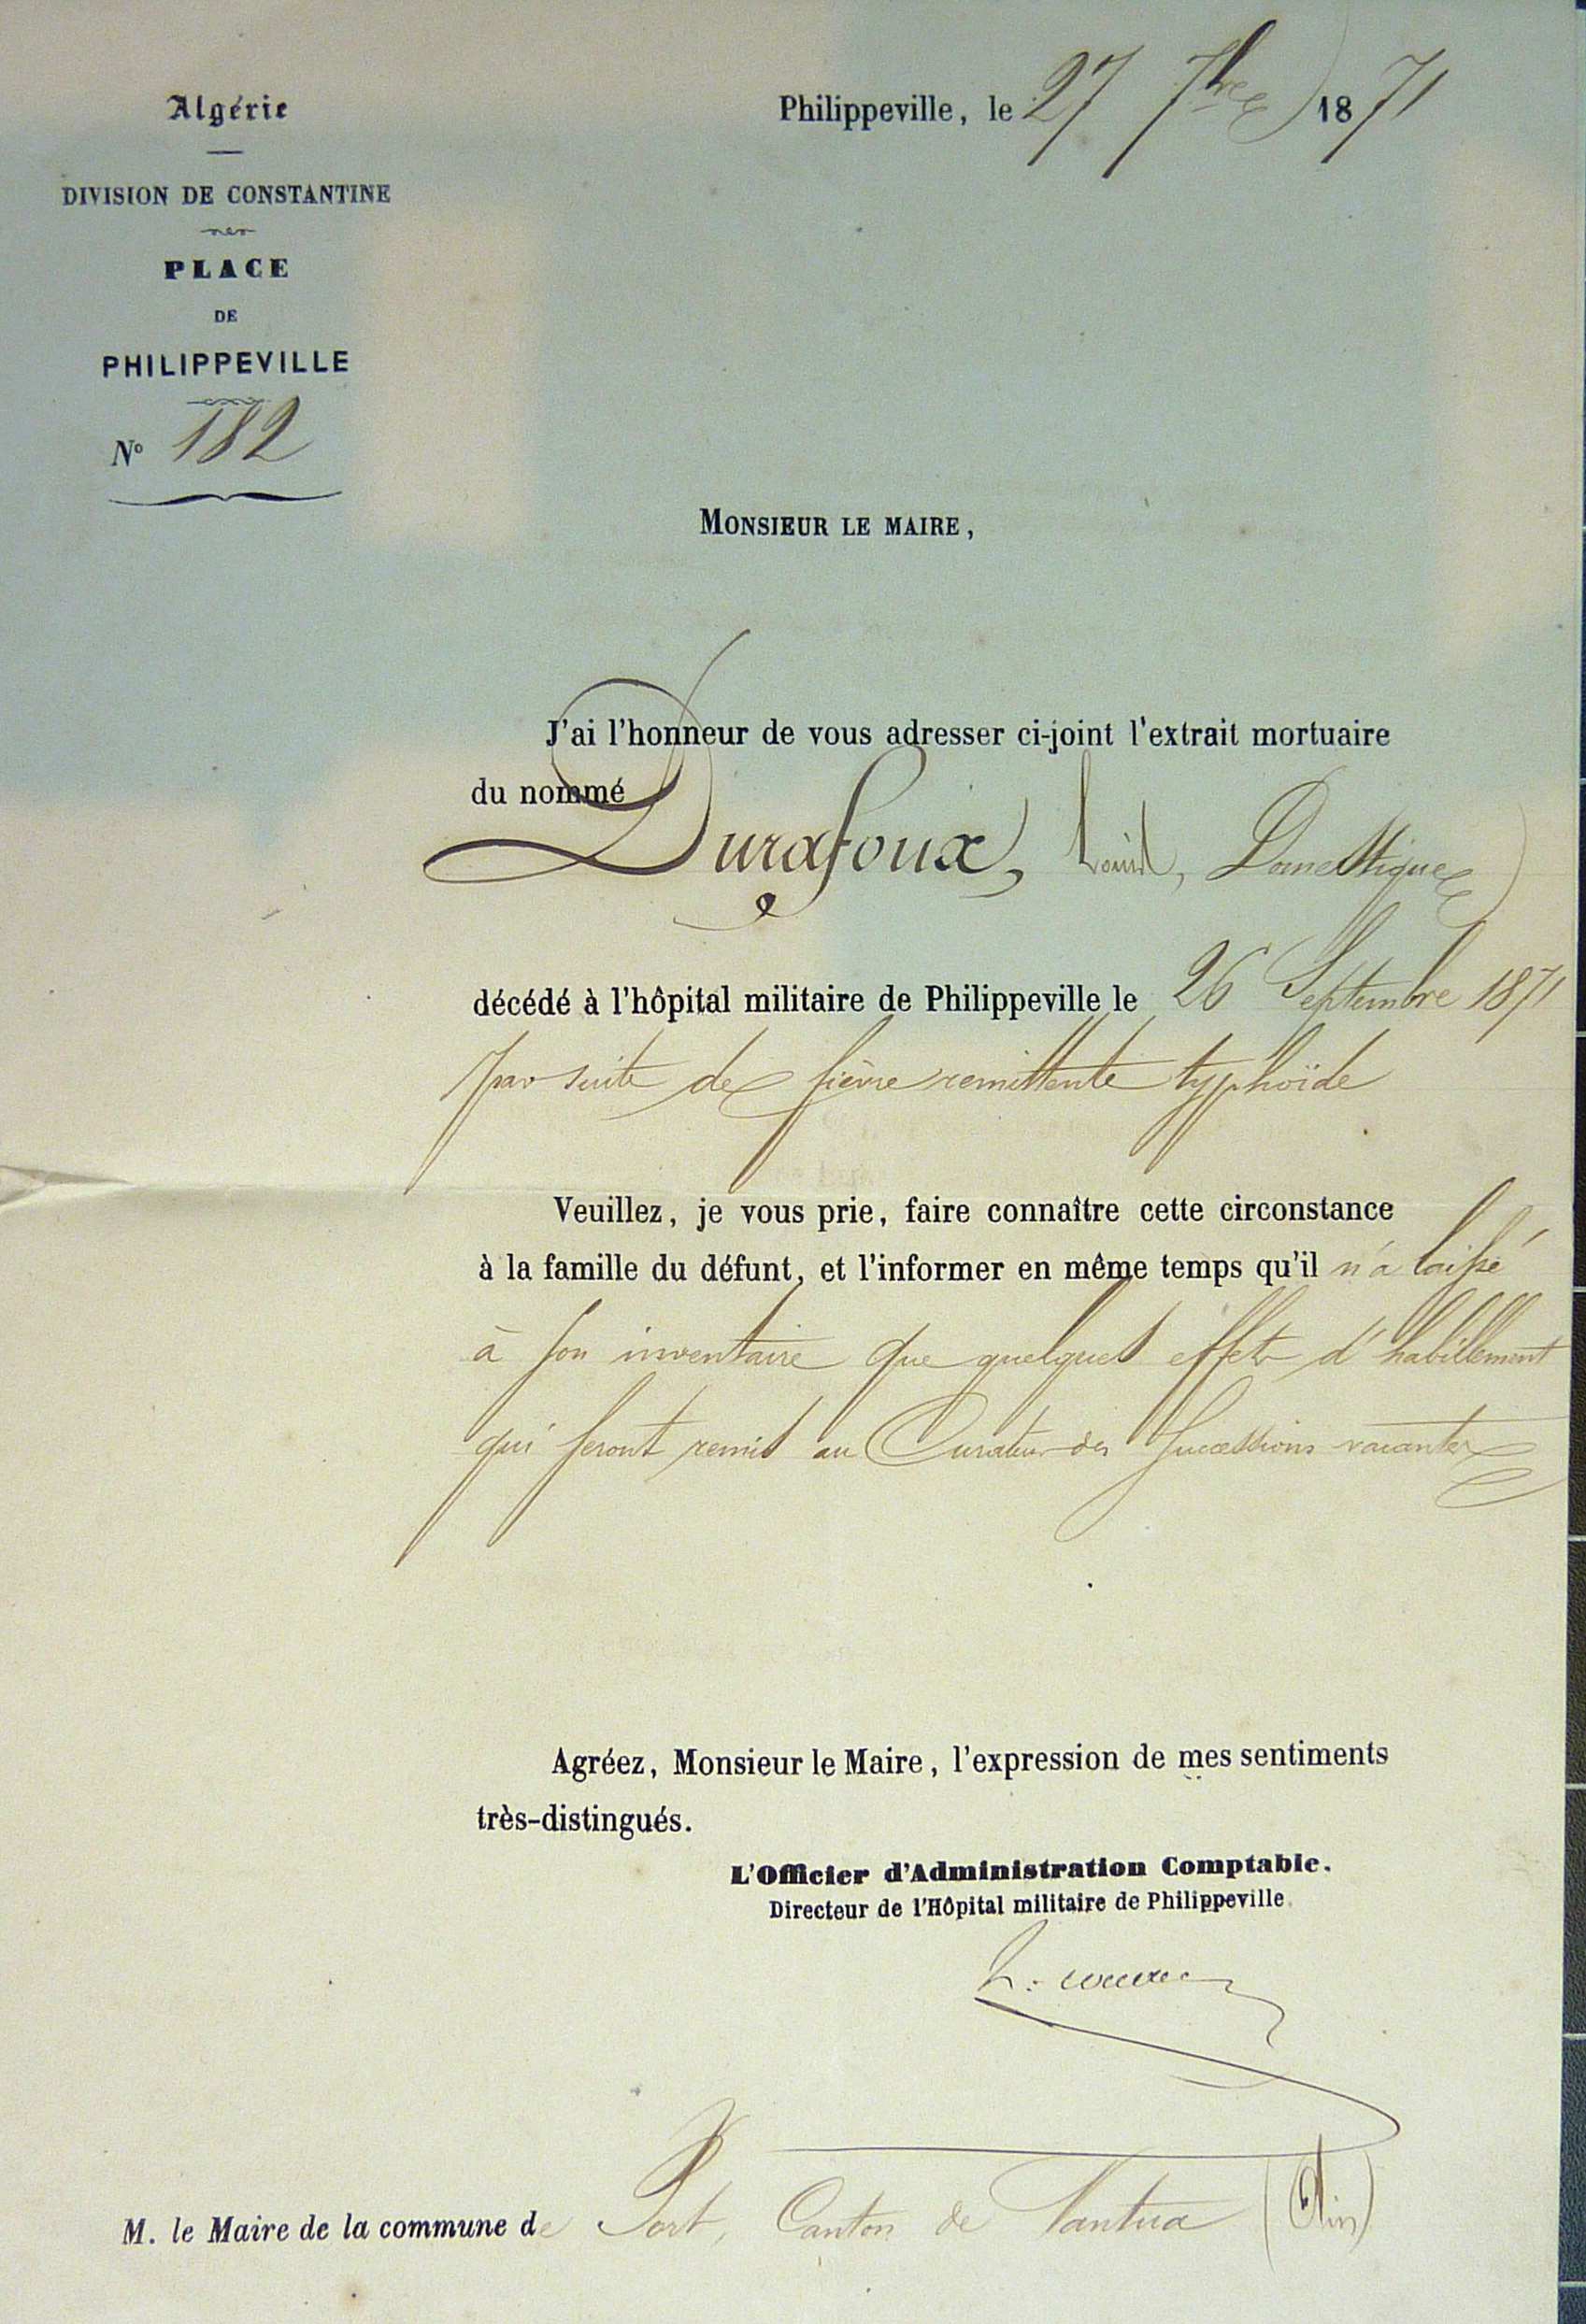 Algérie
Philippeville, le 27 7bre 1871
DIVISION DE CONSTANTINE
PLACE
DE
PHILIPPEVILLE
N° 182
MONSIEUR LE MAIRE,
J'ai l'honneur de vous adresser ci-joint l'extrait mortuaire
du nommé
Durafoux, Louis, Domestique
décédé à l'hôpital militaire de Philippeville le 26 Septembre 1871
par suite de fièvre remittente typhoïde
Veuillez, je vous prie, faire connaître cette circonstance
à la famille du défunt, et l'informer en même temps qu'il n'a laissé
à son inventaire que quelques effets d'habillement
qui seront remis au Curateur des Successions vacantes
Agréez, Monsieur le Maire, l'expression de mes sentiments
très-distingués.
L'Officier d'Administration Comptable.
Directeur de l'Hôpital militaire de Philippeville.
M. le Maire de la commune de Port, Canton de Nantua (Ain)